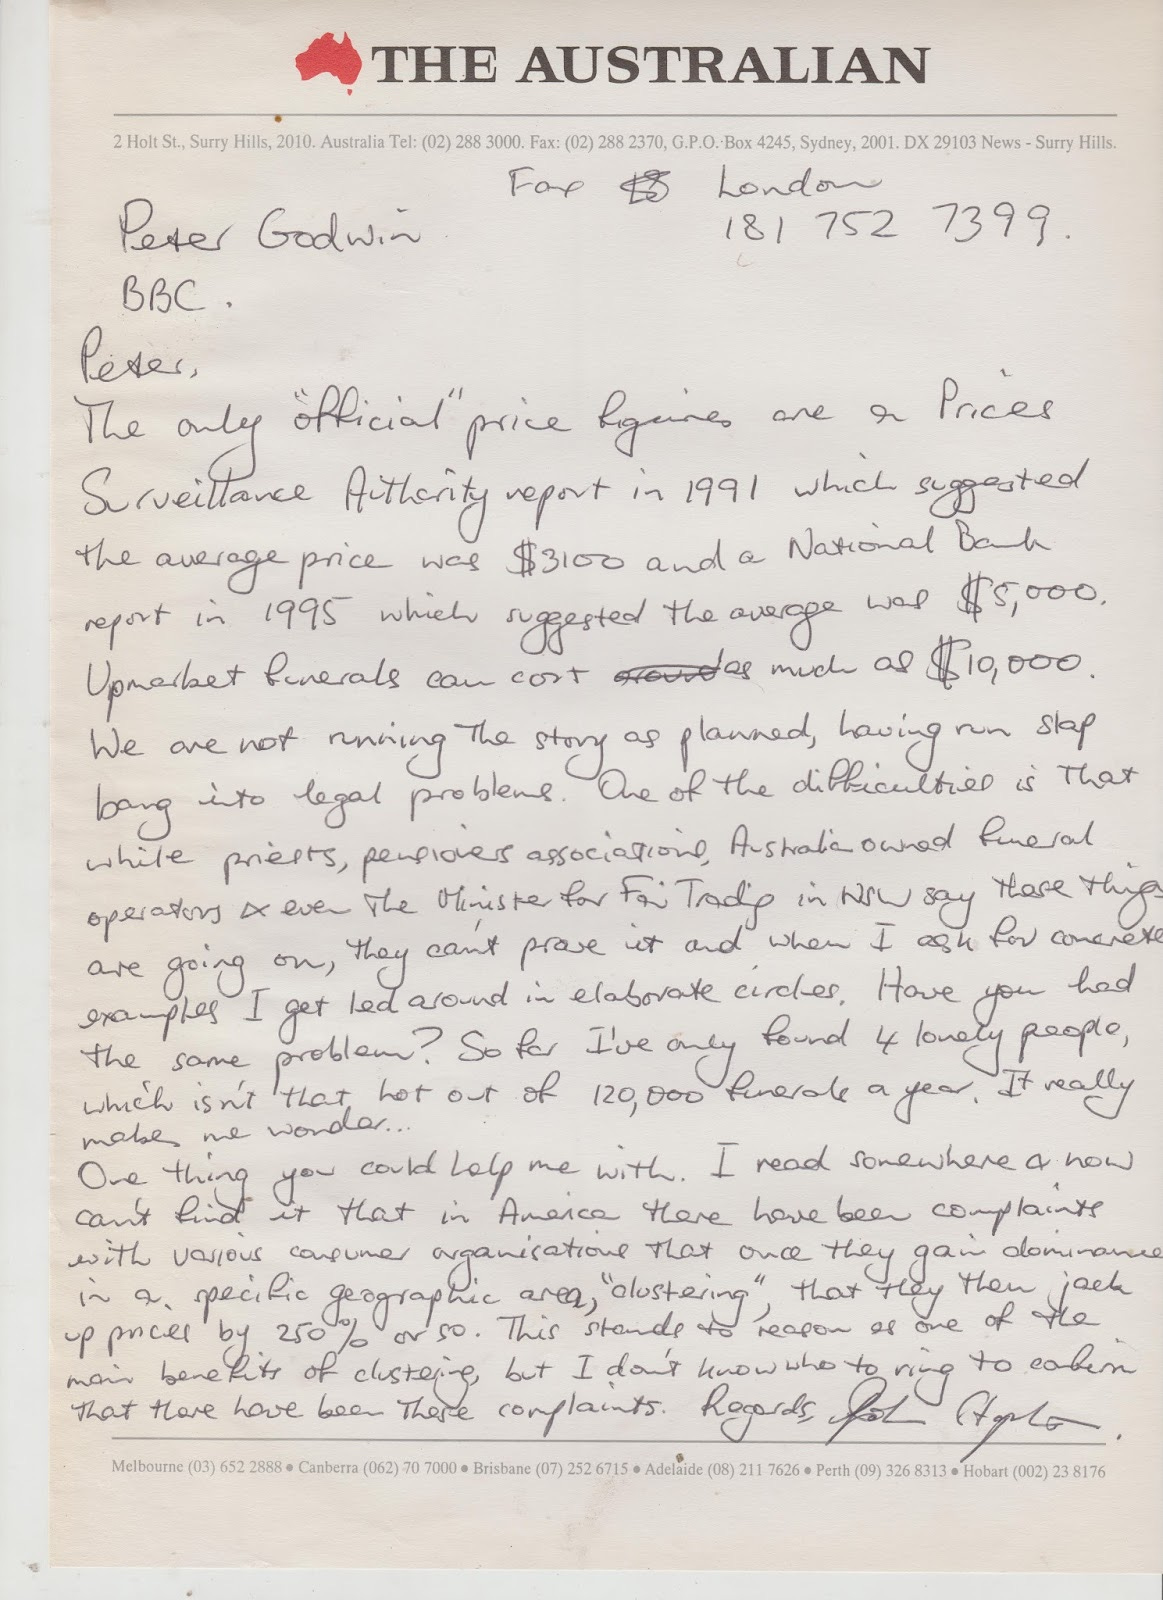 THE AUSTRALIAN
2 Holt St., Surry Hills, 2010. Australia Tel: (02) 288 3000. Fax: (02) 288 2370, G.P.O. Box 4245, Sydney, 2001. DX 29103 News - Surry Hills.
Fax London
Peter Godwin 181 752 7399.
BBC.
Peter,
The only "official" price figures are a Prices
Surveillance Authority report in 1991 which suggested
the average price was $3100 and a National Bank
report in 1995 which suggested the average was $5,000.
Upmarket funerals can cost around as much as $10,000.
We are not running the story as planned, having run slap
bang into legal problems. One of the difficulties is that
while priests, pensioners associations, Australia owned funeral
operators & even the Minister for Fair Tradig in NSW say these things
are going on, they can't prove it and when I ask for concrete
examples I get led around in elaborate circles. Have you had
the same problem? So far I've only found 4 lonely people,
which isn't that hot out of 120,000 funerals a year. It really
makes me wonder...
One thing you could help me with. I read somewhere & now
can't find it that in America there have been complaints
with various consumer organisations that once they gain dominance
in a specific geographic area, "clustering", that they then jack
up prices by 250% or so. This stands to reason as one of the
main benefits of clustering, but I don't know who to ring to confirm
that there have been these complaints. Regards, John
Melbourne (03) 652 2888 • Canberra (062) 70 7000 • Brisbane (07) 252 6715 • Adelaide (08) 211 7626 • Perth (09) 326 8313 • Hobart (002) 23 8176